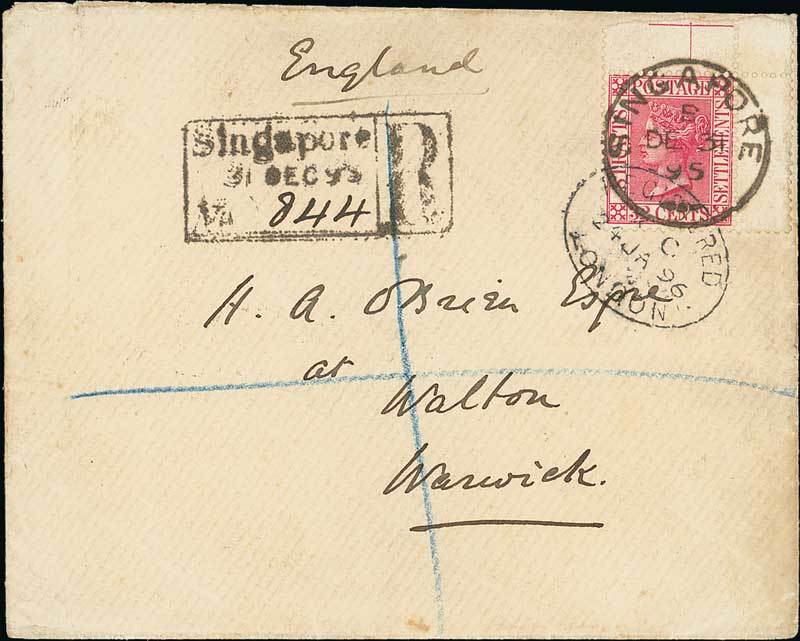 England
POSTAGE
SETTLEMENTS
32 CENTS
SINGAPORE
DE 31
95
Singapore R
31 DEC 95
No 844
RED
C
24 JA 96
LONDON
H. A. O'Brien Esqre
at
Walton
Warwick.